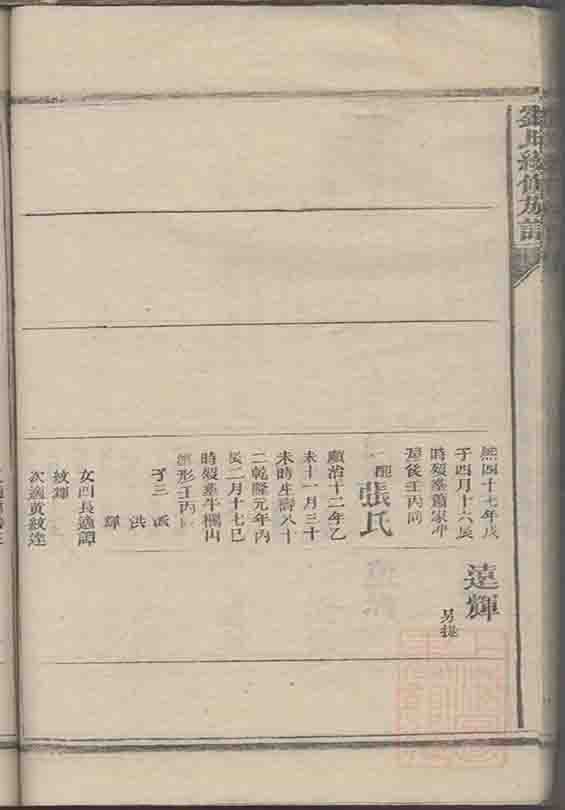 劉氏續修族譜
熙四十七年戊
子四月十六辰
時歿葬蕭家冲
屋後壬丙向
配
張氏
順治十二年乙
未十一月三十
未時生壽八十
二乾隆元年丙
辰二月十七巳
時歿葬牛欄山
形壬丙
子三
洪
輝
女四長適譚
紋輝
次適黃紋達
遠輝
另提